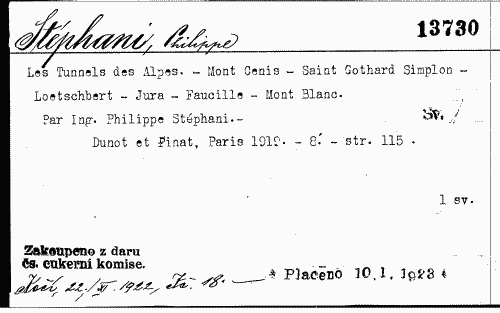 Stéphani, Philippe
13730
Les Tunnels des Alpes. - Mont Cenis - Saint Gothard Simplon -
Loetschbert - Jura - Faucille - Mont Blanc.
Par Ing. Philippe Stéphani.-
Sv. /
Dunot et Pinat, Paris 1919. - 8° - str. 115 .
1 sv.
Zakoupeno z daru
čs. cukerní komise.
22./XI. 1922, 18. —
* Placeno 10.1.1923 *